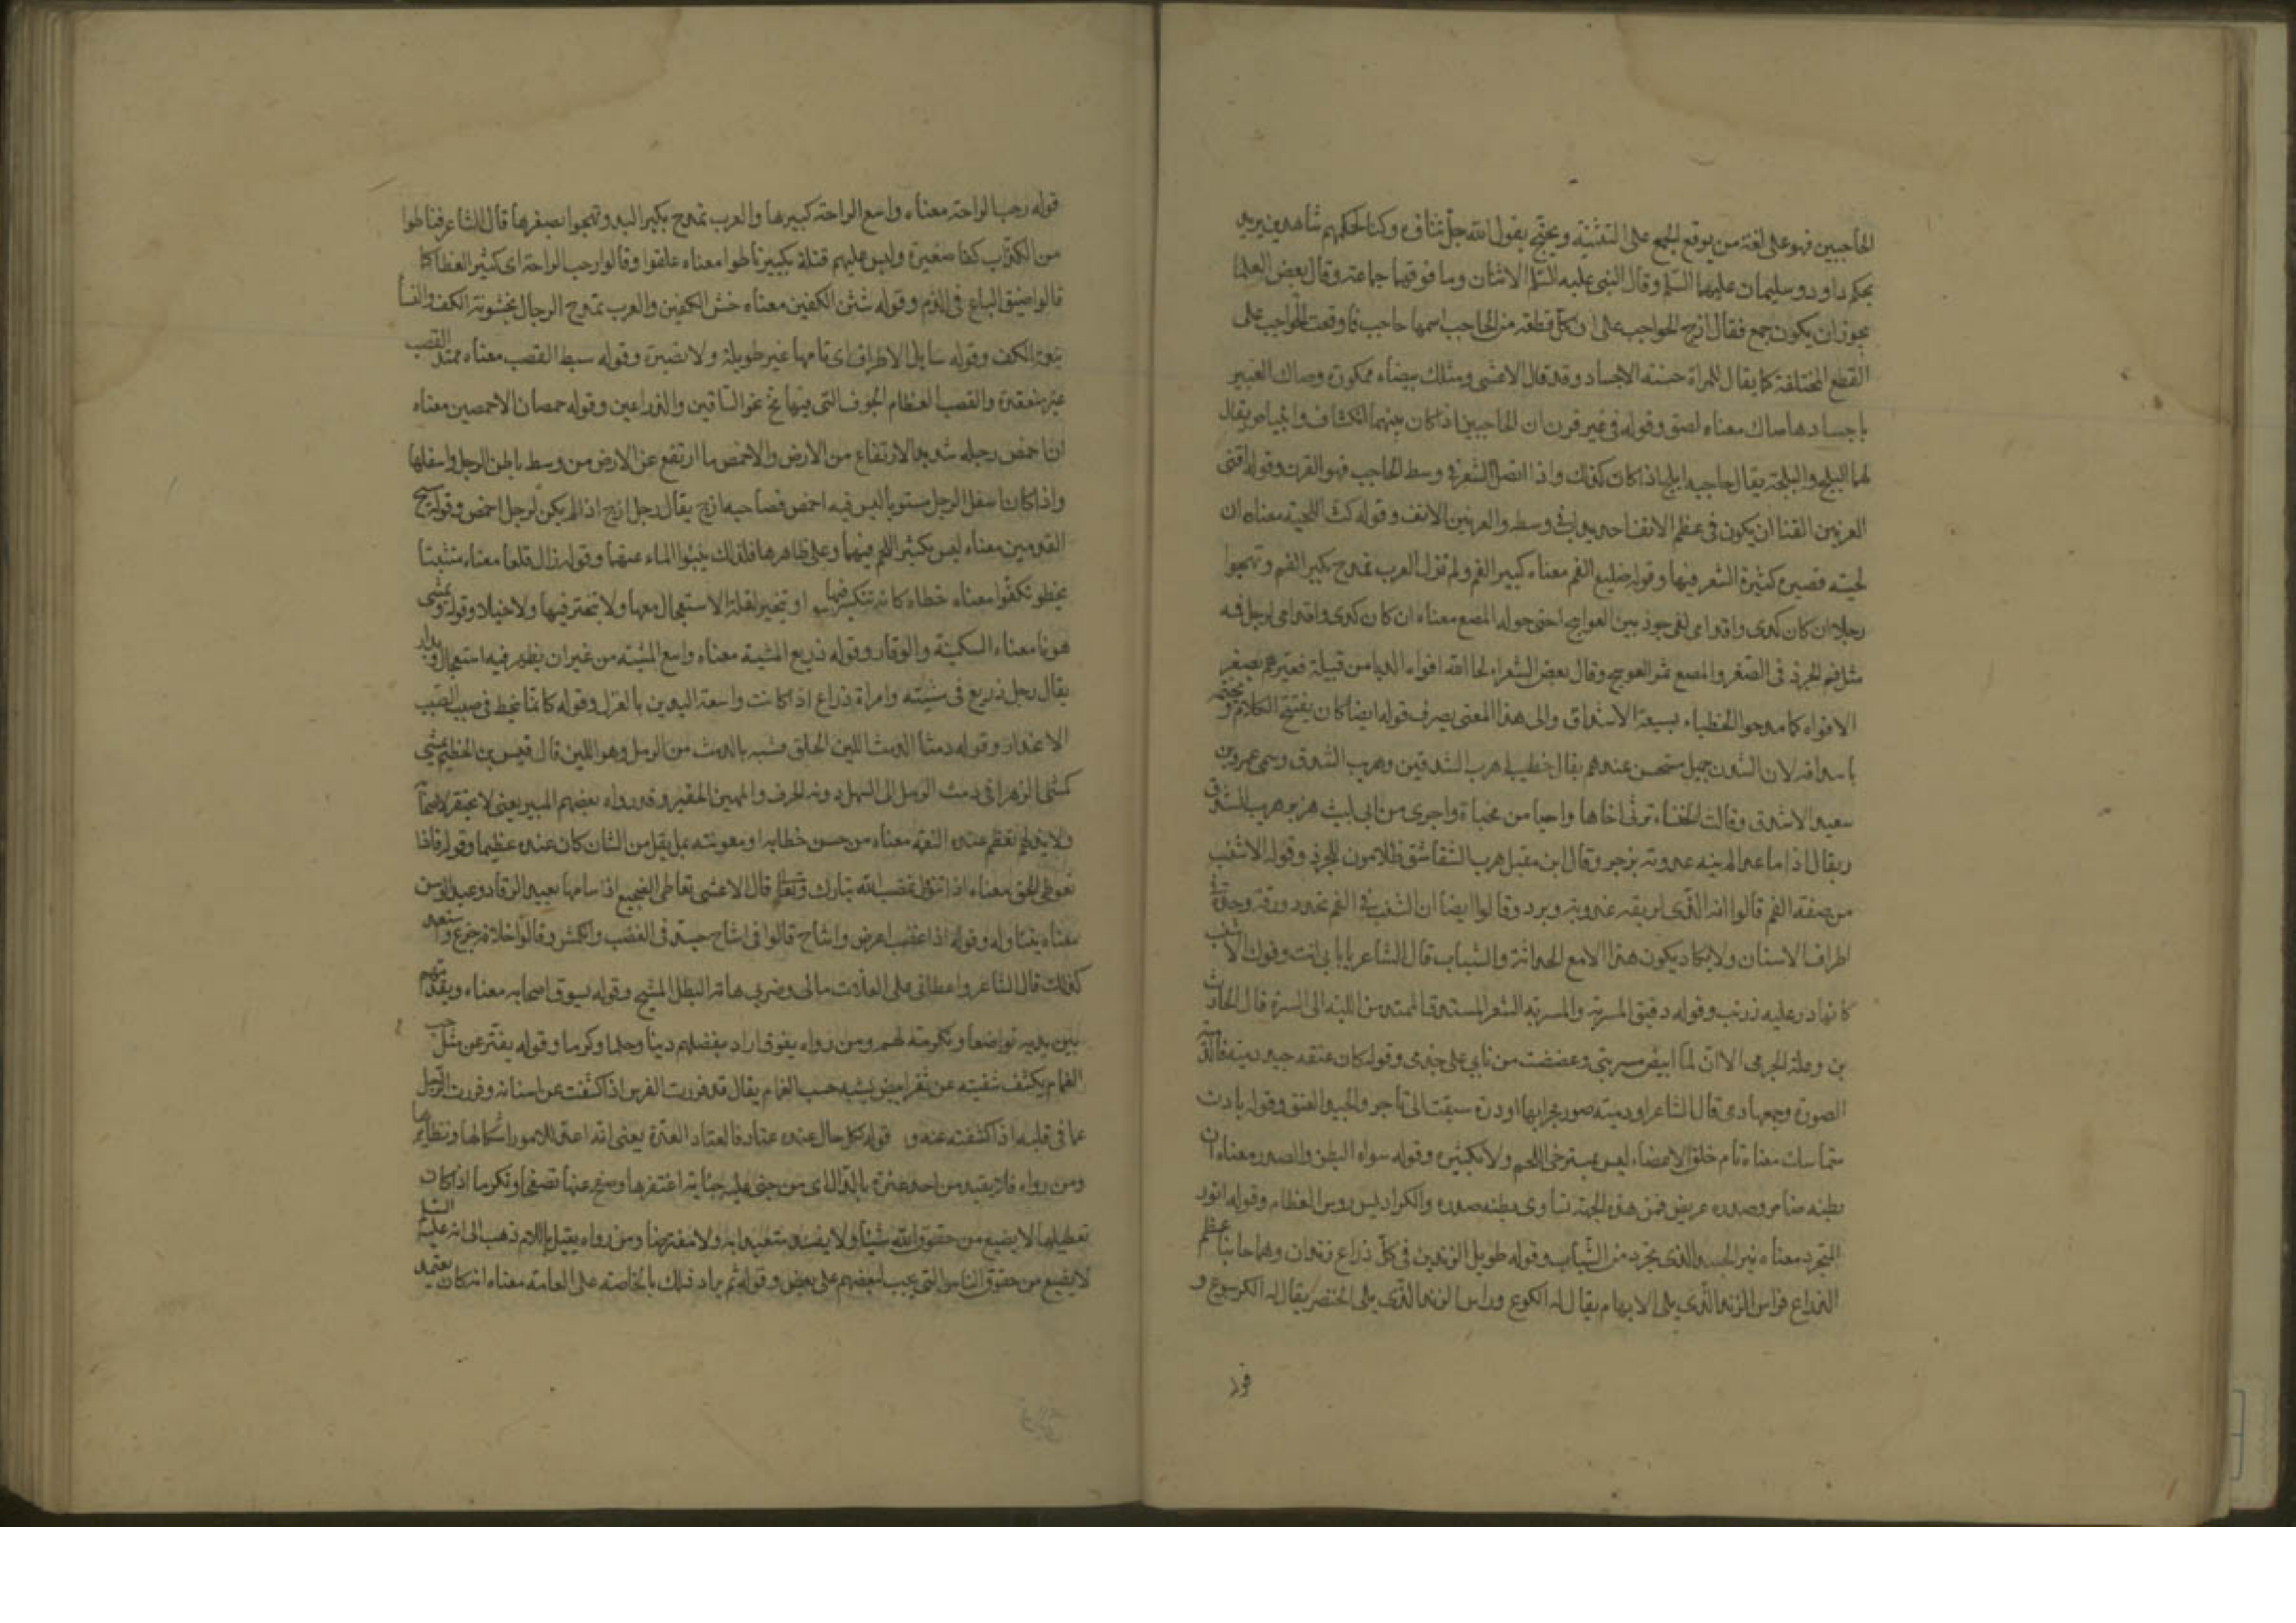 الحاجبين فهو على لغة من يوقع الجمع على التثنية ويحتج بقول الله جل ثناؤه وكنا لحكمهم شاهدين يريد
بحكم داود وسليمان عليهما السلم وقال النبي عليه السلم الاثنان وما فوقهما جماعة وقال بعض العلما
يجوز ان يكون جمع فقال ازج الحواجب على ان كل قطعة من الحاجب اسمها حاجب فاوقعت الحواجب على
القطع المختلفة كما يقال للمراة حسنة الاجساد وقد قال الاعشى ومثلك بيضاء ممكورة وصاك العبير
باجسادها صاك معناه لصق وقوله في غير قرن ان الحاجبين اذا كان بينهما انكشاف وابيضاض يقال
لهما البلج والبلجة يقال حاجبه ابلج اذا كان كذلك واذا اتصل الشعر في وسط الحاجب فهو القرن وقوله اقنى
العرنين القنا ان يكون في عظم الانف احديداب في وسطه والعرنين الانف وقوله كث اللحية معناه ان
لحيته قصيرة كثيرة الشعر فيها وقوله ضليع الفم معناه كبير الفم ولم تزل العرب تمدح بكبر الفم وتهجوا
رجلا ان كان كدى واقدامي لفي جرذ بين العواسج احنى حوله المصع معناه ان كان كدى واقدامي لرجل فمه
مثل فم الجرذ في الصغر والمصع ثمر العوسج وقال بعض الشعراء لحا الله افواه الدبا من قبيلة فعيرهم بصغر
الافواه كما مدحوا الخطباء بسعة الاشداق والى هذا المعنى يصرف قوله ايضا كان يفتتح الكلام ويختمه
باشداقه لان الشدق جميل مستحسن عندهم يقال خطيب اهرت الشدقين وهريت الشدق وسمى عمرو بن
سعيد الاشدق وقالت الخنساء ترثى اخاها واحيا من مخباة واجرى من ابي ليث هزبر هريت الشدق
ريبال اذا ما عدا لم ينه عدوته بزجر وقال ابن مقبل هرت الشقاشق ظلامون للجزر وقوله الاشنب
من صفة الفم قالوا انه الذى لريقه عذوبة وبرد وقالوا ايضا ان الشنب في الفم تحدد ورقة وحدة في
اطراف الاسنان ولا يكاد يكون هذا الا مع الحداثة والشباب قال الشاعر يا بابي انت وفوك الاشنب
كانما ذر عليه زرنب وقوله دقيق المسربة والمسربة الشعر المستدق الممتد من اللبة الى السرة قال الحارث
بن وعلة الجرمي الا ان لما ابيض مسربتي وعضضت من نابي على جذمى وقوله كان عنقه جيد دمية فالدمية
الصورة وجمعها دمى قال الشاعر او دمية صور محرابها او درة سيقت الى تاجر والجيد العنق وقوله بادن
متماسك معناه تام خلق الاعضاء ليس بمسترخي اللحم ولا بكثيره وقوله سواء البطن والصدر معناه ان
بطنه ضامر وصدره عريض فمن هذه الجهة تساوى بطنه صدره والكراديس روس العظام وقوله انور
المتجرد معناه نير الجسد الذى تجرد من الثياب وقوله طويل الزندين في كل ذراع زندان وهما جانبا عظم
الذراع فراس الزند الذى يلى الابهام يقال له الكوع وراس الزند الذى يلى الخنصر يقال له الكرسوع و
قوله
قوله رحب الراحة معناه واسع الراحة كبيرها والعرب تمدح بكبر اليد وتهجوا بصغرها قال الشاعر فناطوا
من الكذاب كفا صغيرة وليس عليهم قتله بكبير ناطوا معناه علقوا وقالوا رحب الراحة اى كثير العطا كما
قالوا ضيق الباع في الذم وقوله شثن الكفين معناه خشن الكفين والعرب تمدح الرجال بخشونة الكف والنسا
بنعومة الكف وقوله سايل الاطراف اى تامها غير طويلة ولا قصيرة وقوله سبط القصب معناه ممتد القصب
غير منعقدة والقصب العظام الجوف التى فيها مخ نحو الساقين والذراعين وقوله خمصان الاخمصين معناه
ان اخمص رجله شديد الارتفاع من الارض والاخمص ما ارتفع عن الارض من وسط باطن الرجل واسفلها
واذا كان اسفل الرجل مستويا ليس فيه اخمص فصاحبه ازح يقال رجل ازح اذا لم يكن لرجله اخمص وقوله مسيح
القدمين معناه ليس بكثير اللحم فيهما وعلى ظاهرها فلذلك ينبوا الماء عنهما وقوله زال قلعا معناه متثبتا
يخطو تكفوا معناه خطاه كانه يتكسر فيها او تبختر لقلة الاستعجال معها ولا تبختر فيها ولا خيلا وقوله ويمشى
هونا معناه السكينة والوقار وقوله ذريع المشية معناه واسع المشية من غير ان يظهر فيه استعجال وبدار
يقال رجل ذريع في مشيته وامراة ذراع اذا كانت واسعة اليدين بالغزل وقوله كانما ينحط في صبب الصبب
الانحدار وقوله دمثا الدمث اللين الخلق مشبه بالدمث من الرمل وهو اللين قال قيس بن الخطيم يمشى
كمشى الزهرا في دمث الرمل الى السهل دونه الجرف والمهين الحقير وقد رواه بعضهم المهين يعنى لا يحتقر اصحابه
ولا يذلهم تعظم عنده النعمة معناه من حسن خطابه او معونته بما يقل من الشان كان عنده عظيما وقوله فاذا
تعوطى الحق معناه اذا تنوول غضب لله تبارك وتعالى قال الاعشى تعاطى الضجيع اذا سامها بعيد الرقاد وعند الوسن
معناه يتناوله وقوله اذا غضب اعرض واشاح قالوا في اشاح جد في الغضب وانكمش وقالوا خلافه جزع واستعد
كذلك قال الشاعر واعطائى على العلات مالى وضربي هامة البطل المشيح وقوله يسوق اصحابه معناه ويقدمهم
بين يديه تواضعا وتكرمة لهم ومن رواه يفوق اراد يفضلهم دينا وحلما وكرما وقوله يفتر عن مثل حب
الغمام يكشف شفتيه عن ثغر ابيض يشبه حب الغمام يقال قد فررت الفرس اذا كشفت عن اسنانه وفررت الرجل
عما في قلبه اذا كشفته عنه وقوله لكل حال عنده عتاد فالعتاد العدة يعنى انه اعد للامور اشكالها ونظايرها
ومن رواه فلا يقيد من احد عثرة بالدال اى من جنى عليه جناية اغتفرها وصفح عنها تصفحا وتكرما اذا كان
تعطيلها لا يضيع من حقوق الله شيئا ولا يفسد متعبدا به ولا مفترضا ومن رواه يقيل باللام ذهب الى انه عليه السلم
لا يضيع من حقوق الناس التى يجب لبعضهم على بعض وقوله ثم يرد ذلك بالخاصة على العامة معناه انه كان يعتمد